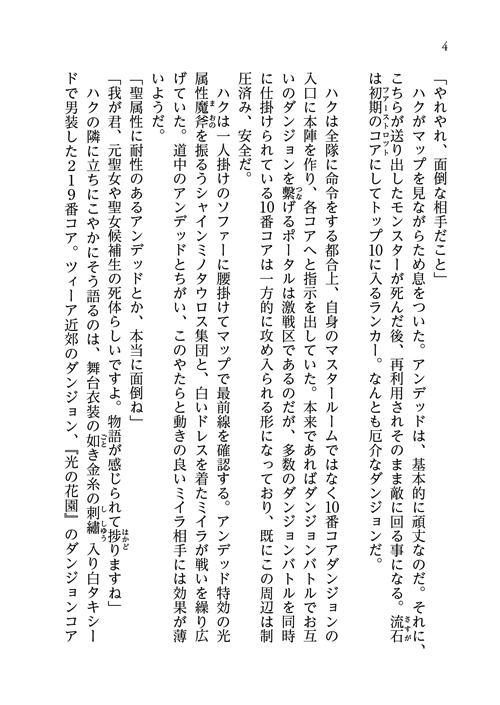 4
「やれやれ、面倒な相手だこと」
　ハクがマップを見ながらため息をついた。アンデッドは、基本的に頑丈なのだ。それに、
こちらが送り出したモンスターが死んだ後、再利用されそのまま敵に回る事になる。流石
は初期のコアにしてトップ10に入るランカー。なんとも厄介なダンジョンだ。
　ハクは全隊に命令をする都合上、自身のマスタールームではなく10番コアダンジョンの
入口に本陣を作り、各コアへと指示を出していた。本来であればダンジョンバトルでお互
いのダンジョンを繋げるポータルは激戦区であるのだが、多数のダンジョンバトルを同時
に仕掛けられている10番コアは一方的に攻め入られる形になっており、既にこの周辺は制
圧済み、安全だ。
　ハクは一人掛けのソファーに腰掛けてマップで最前線を確認する。アンデッド特効の光
属性魔斧を振るうシャインミノタウロス集団と、白いドレスを着たミイラが戦いを繰り広
げていた。道中のアンデッドとちがい、このやたらと動きの良いミイラ相手には効果が薄
いようだ。
「聖属性に耐性のあるアンデッドとか、本当に面倒ね」
「我が君、元聖女や聖女候補生の死体らしいですよ。物語が感じられて捗りますね」
　ハクの隣に立ちにこやかにそう語るのは、舞台衣装の如き金糸の刺繡入り白タキシー
ドで男装した219番コア。ツィーア近郊のダンジョン、『光の花園』のダンジョンコア